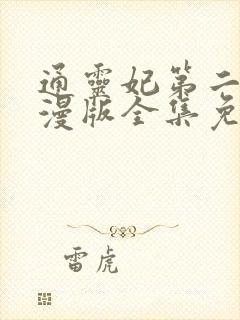 通靈妃第二
漫版全集免
雷虎